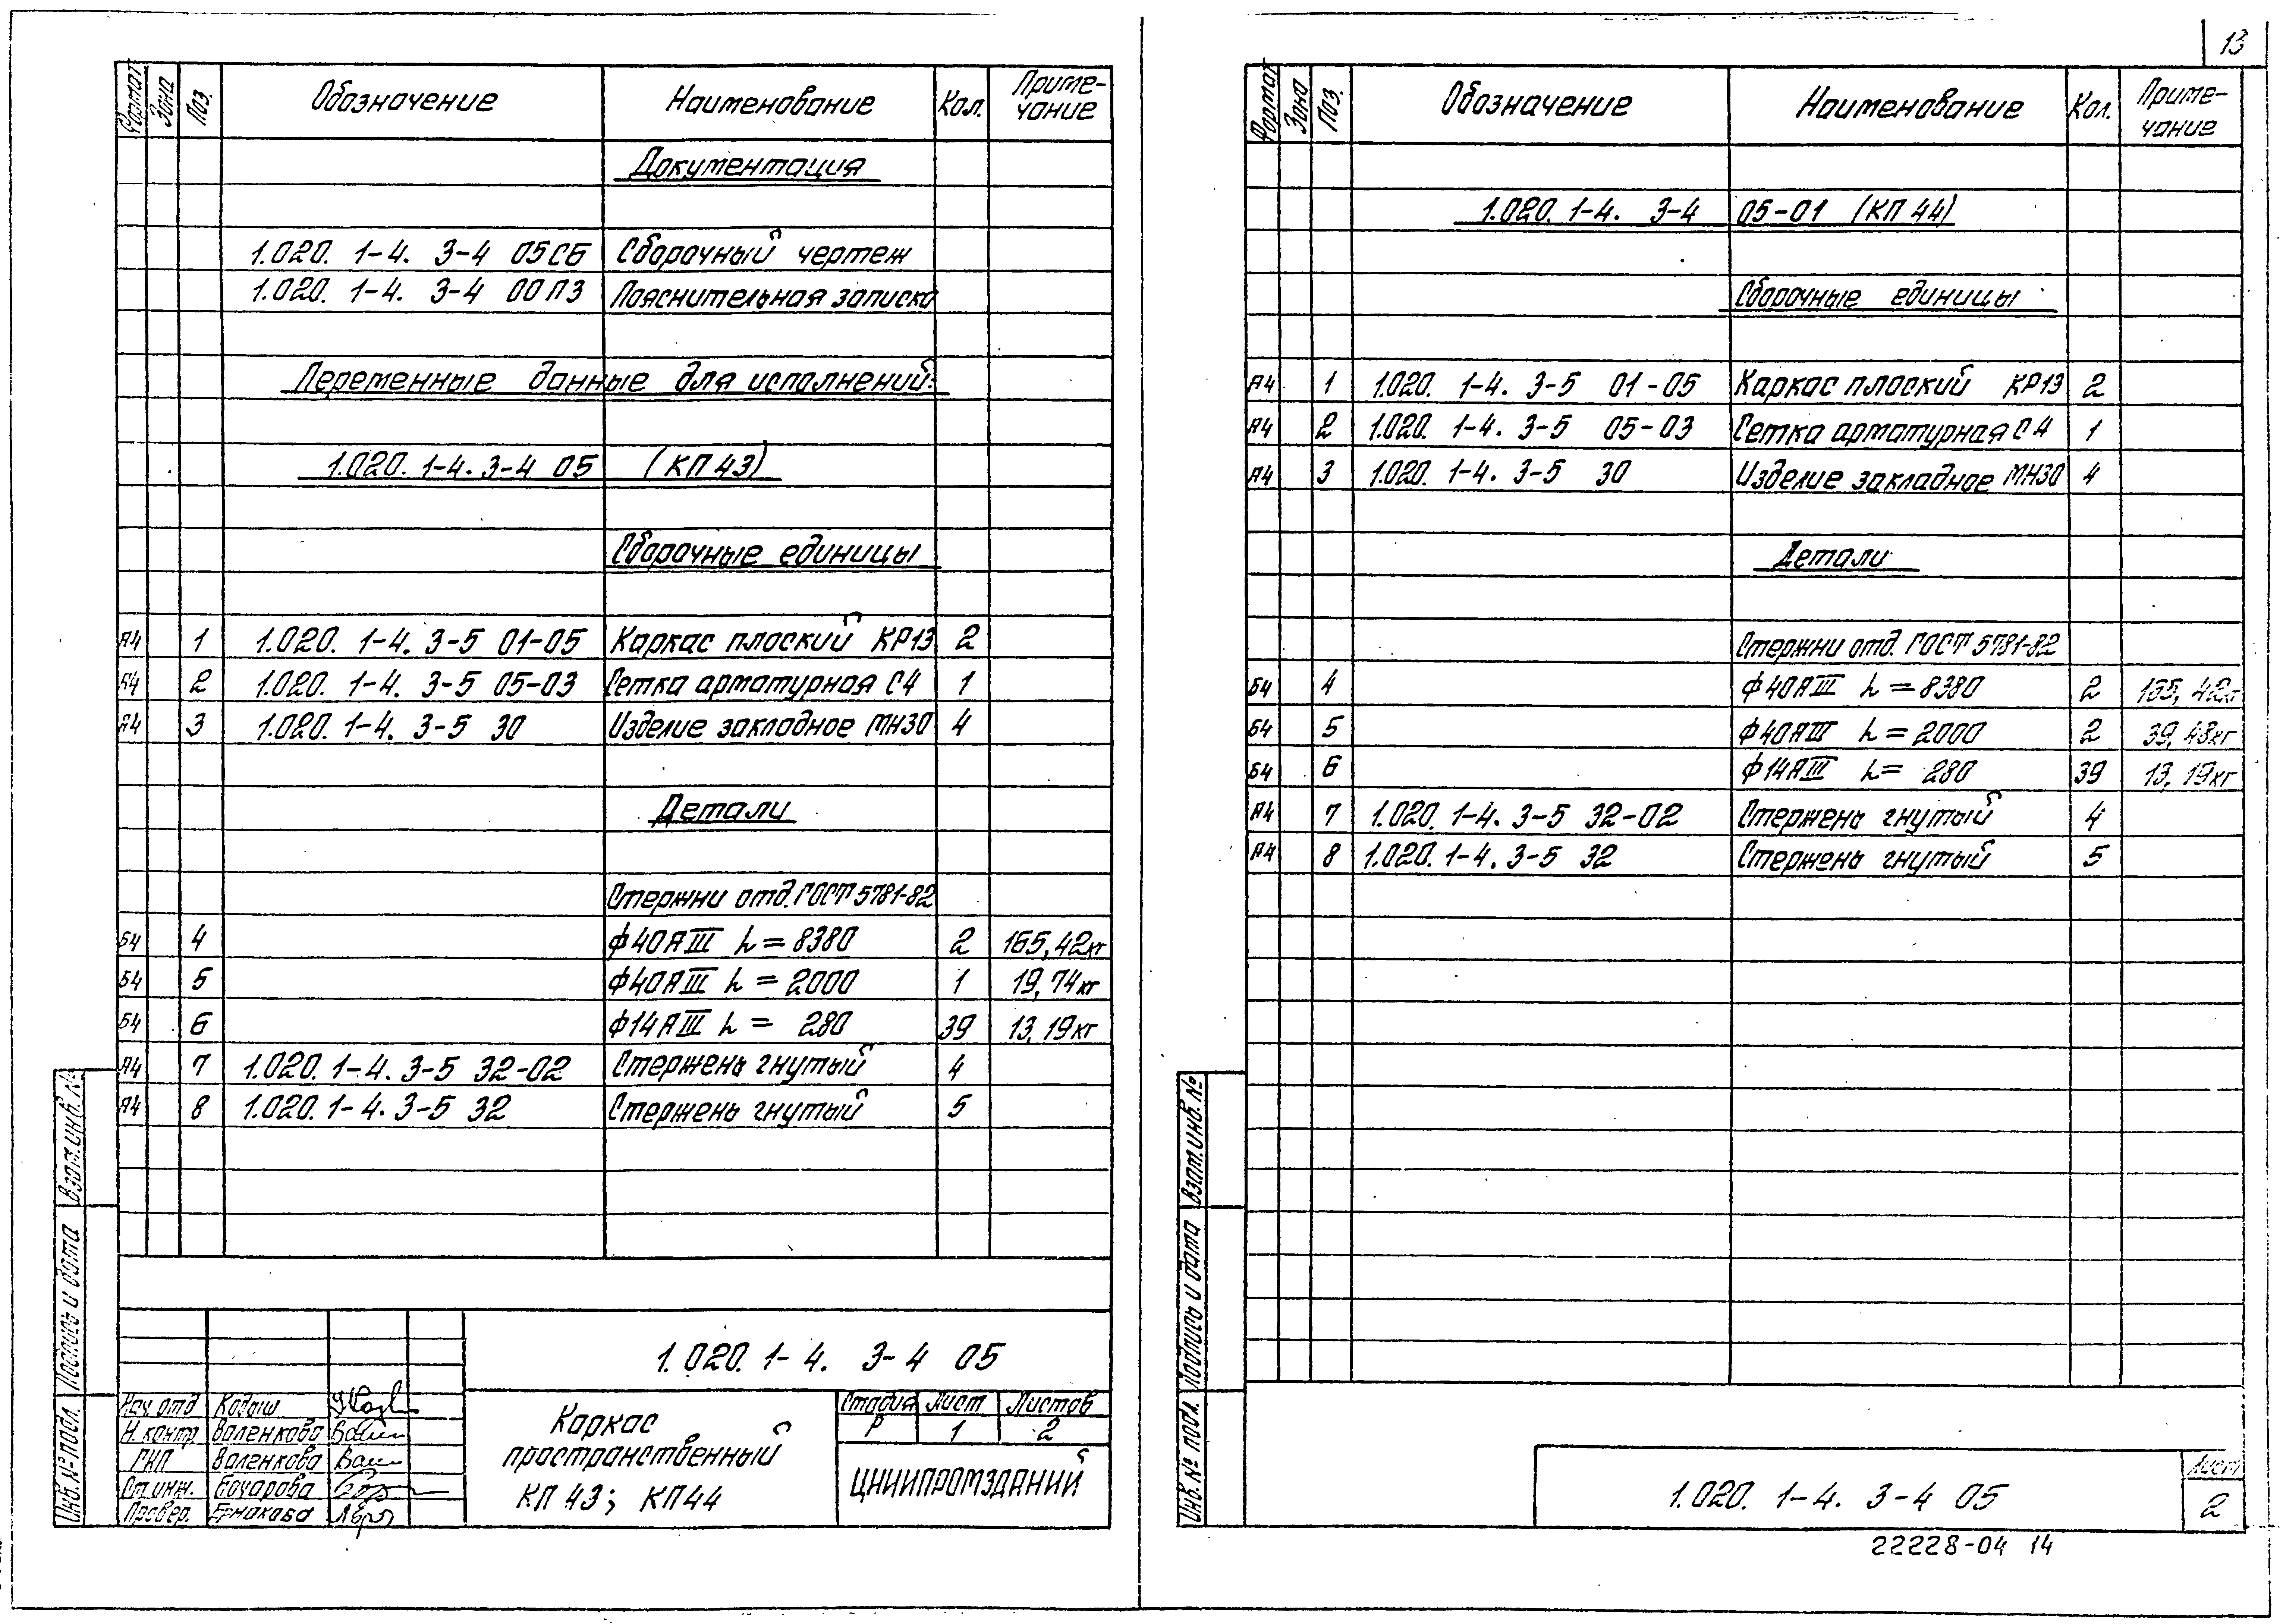 13
Формат Зона Поз. Обозначение Наименование Кол. Приме-
чание
Документация
1.020. 1-4. 3-4 05СБ Сборочный чертеж
1.020. 1-4. 3-4 00ПЗ Пояснительная записка
Переменные данные для исполнений:
1.020. 1-4. 3-4 05 (КП 43)
Сборочные единицы
А4 1 1.020. 1-4. 3-5 01-05 Каркас плоский КР13 2
А4 2 1.020. 1-4. 3-5 05-03 Сетка арматурная С4 1
А4 3 1.020. 1-4. 3-5 30 Изделие закладное МН30 4
Детали
Стержни отд. ГОСТ 5781-82
Б4 4 ф40АIII L=8380 2 165,42кг
Б4 5 ф40АIII L=2000 1 19,74кг
Б4 6 ф14АIII L= 280 39 13,19кг
А4 7 1.020. 1-4. 3-5 32-02 Стержень гнутый 4
А4 8 1.020. 1-4. 3-5 32 Стержень гнутый 5
Взам. инв. №
Подпись и дата
Инв. № подл.
1.020. 1-4. 3-4 05
Нач. отд Кодыш
Н. контр Валенкова
ГИП Валенкова
Ст. инж. Бочарова
Провер. Ермакова
Каркас
пространственный
КП 43; КП44
Стадия Лист Листов
Р 1 2
ЦНИИПРОМЗДАНИЙ
Формат Зона Поз. Обозначение Наименование Кол. Приме-
чание
1.020. 1-4. 3-4 05-01 (КП 44)
Сборочные единицы
А4 1 1.020. 1-4. 3-5 01-05 Каркас плоский КР13 2
А4 2 1.020. 1-4. 3-5 05-03 Сетка арматурная С4 1
А4 3 1.020. 1-4. 3-5 30 Изделие закладное МН30 4
Детали
Стержни отд. ГОСТ 5781-82
Б4 4 ф40АIII L=8380 2 165,42кг
Б4 5 ф40АIII L=2000 2 39,48кг
Б4 6 ф14АIII L= 280 39 13,19кг
А4 7 1.020. 1-4. 3-5 32-02 Стержень гнутый 4
А4 8 1.020. 1-4. 3-5 32 Стержень гнутый 5
Взам. инв. №
Подпись и дата
Инв. № подл.
1.020. 1-4. 3-4 05
Лист
2
22228-04 14